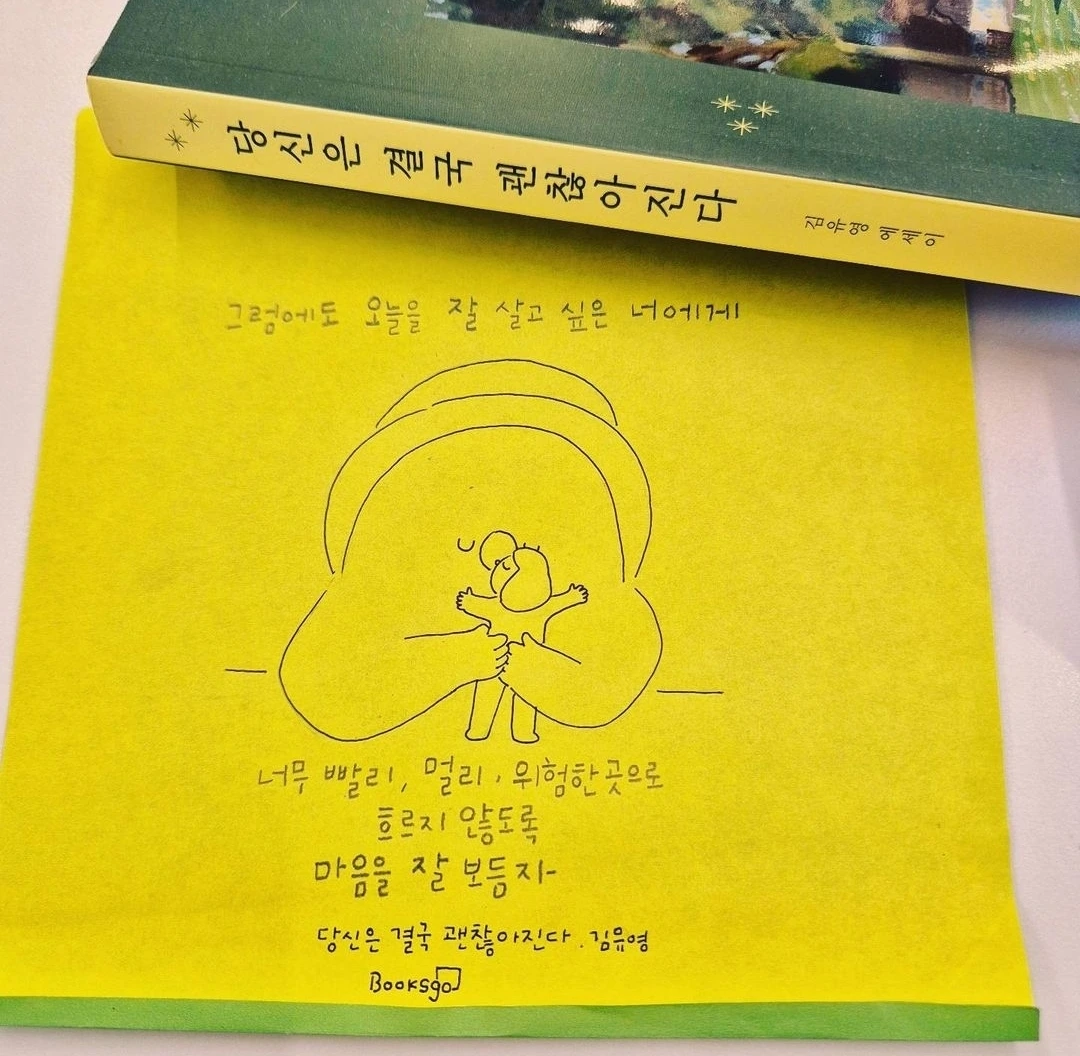 당신은 결국 괜찮아진다 김유영 에세이
그럼에도 오늘을 잘 살고 싶은 너에게
너무 빨리, 멀리, 위험한곳으로
흐르지 않도록
마음을 잘 보듬자
당신은 결국 괜찮아진다. 김유영
Booksgo